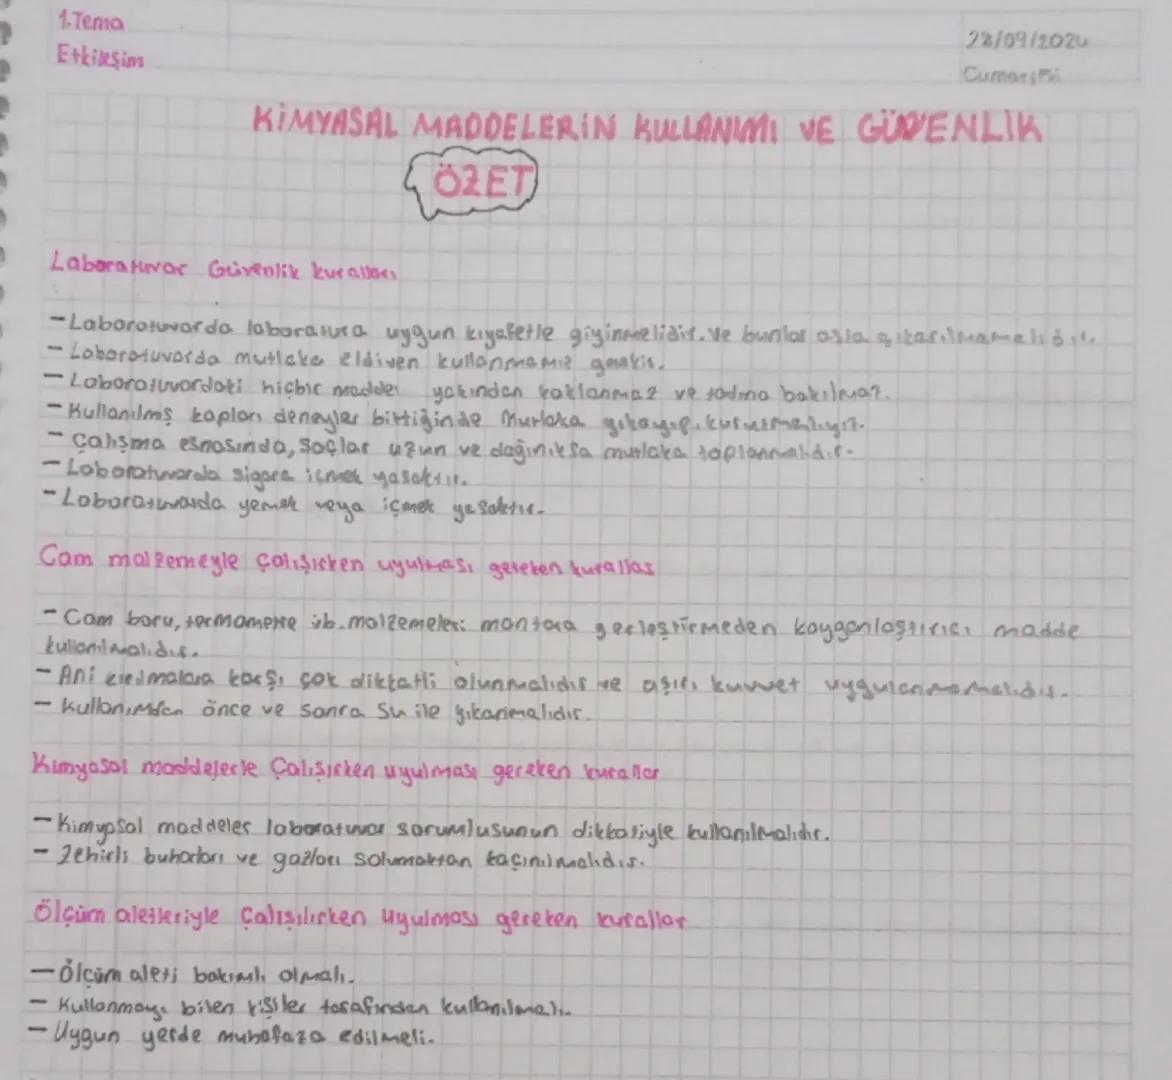 1.Tema
28/09/2024
Etkileşim
Cumartesi
KİMYASAL MADDELERİN KULLANIMI VE GÜVENLİK
ÖZET
Laboratuvar Güvenlik kuralları
-Laboratuvarda laboratura uygun kıyafetle giyinmelidir. Ve bunlar asla çıkarılmamalıdır.
- Laboratuvarda mutlaka eldiven kullanmamız gerekir.
- Laboratuvardaki hiçbir madde yakından koklanmaz ve tadına bakılmaz.
- Kullanılmış kapları deneyler bittiğinde Mutlaka yıkayıp, kurutmalıyız.
- Çalışma esnasında, Saçlar uzun ve dağınıksa mutlaka toplanmalıdır.
- Laboratuvarda sigara içmek yasaktır.
- Laboratuvarda yemek veya içmek yasaktır.
Cam malzemeyle Çalışırken uyulması gereken kurallar
- Cam boru, termometre vb. malzemeleri mantara yerleştirmeden kayganlaştırıcı madde
kullanılmalıdır.
- Ani kırılmalara karşı çok dikkatli olunmalıdır ve aşırı kuvvet uygulanmamalıdır.
- Kullanımdan önce ve sonra Su ile yıkanmalıdır.
Kimyasal maddelerle Çalışırken uyulması gereken kurallar
- Kimyasal maddeler laboratuvar sorumlusunun dikkatiyle kullanılmalıdır.
- Zehirli buharları ve gazları solumaktan kaçınılmalıdır.
Ölçüm aletleriyle Çalışılırken Uyulması gereken kurallar
- Ölçüm aleti bakımlı olmalı.
- Kullanmayı bilen kişiler tarafından kullanılmalı.
- Uygun yerde muhafaza edilmeli.